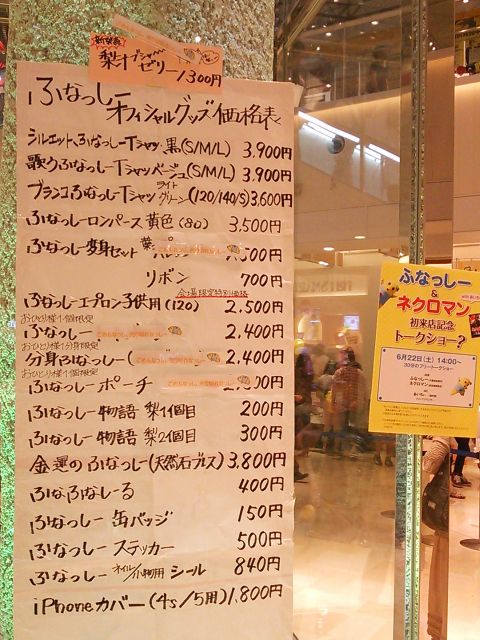 新発売
梨オブシャーゼリー1,300円
ふなっしー
オフィシャルグッズ価格表
シルエットふなっしーTシャツ・黒(S/M/L) 3,900円
歌うふなっしーTシャツベージュ(S/M/L) 3,900円
ブランコふなっしーTシャツライトグリーン(120/140/S) 3,600円
ふなっしーロンパース 黄色(80) 3,500円
ふなっしー変身セット 葉 500円
リボン 700円
会場限定特別価格
ふなっしーエプロン子供用(120) 2,500円
おひとり様1個限定
ふなっしー 2,400円
おひとり様1分身限定
分身ふなっしー( 2,400円
おひとり様1個限定
ふなっしーポーチ 2, 00円
ふなっしー物語 梨1個目 200円
ふなっしー物語 梨2個目 300円
金運のふなっしー(天然石ブレス) 3,800円
ふなふなしーる 400円
ふなっしー 缶バッジ 150円
ふなっしー ステッカー 500円
ふなっしー オイル/小物用 シール 840円
iPhoneカバー(4s/5用) 1,800円
ふなっしー
&
ネクロマン
初来店記念
トークショー?
6月22日(土)14:00〜
30分のフリートークショー
ふなっしー
ネクロマン